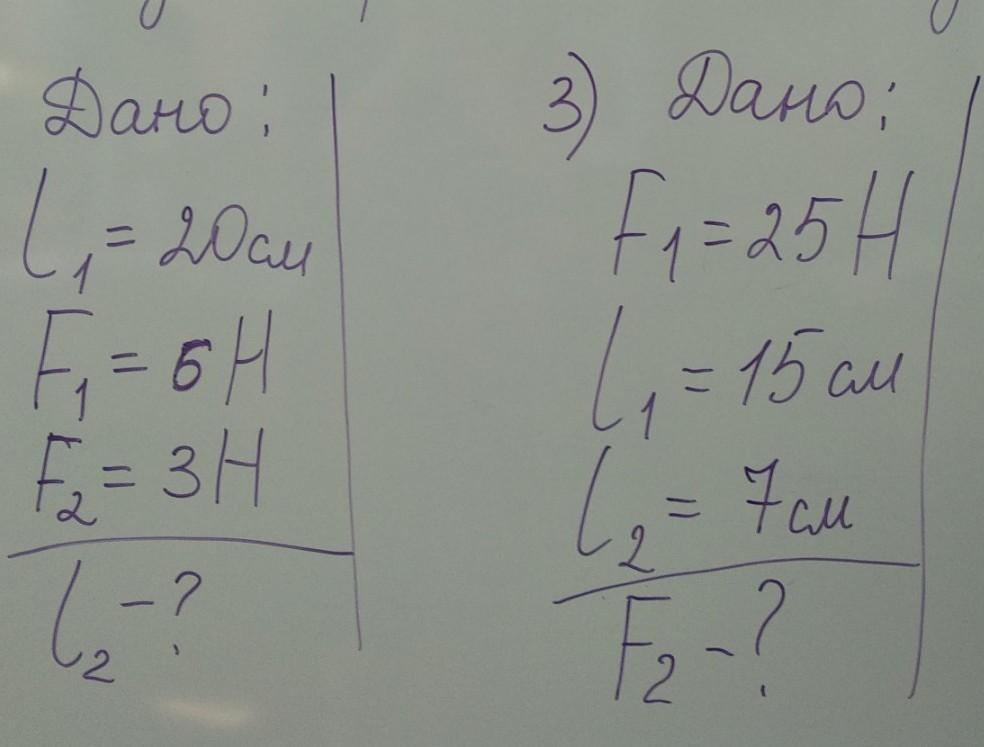 Дано:
l₁ = 20см
F₁ = 6Н
F₂ = 3Н
l₂ - ?
3) Дано:
F₁ = 25Н
l₁ = 15 см
l₂ = 7см
F₂ - ?